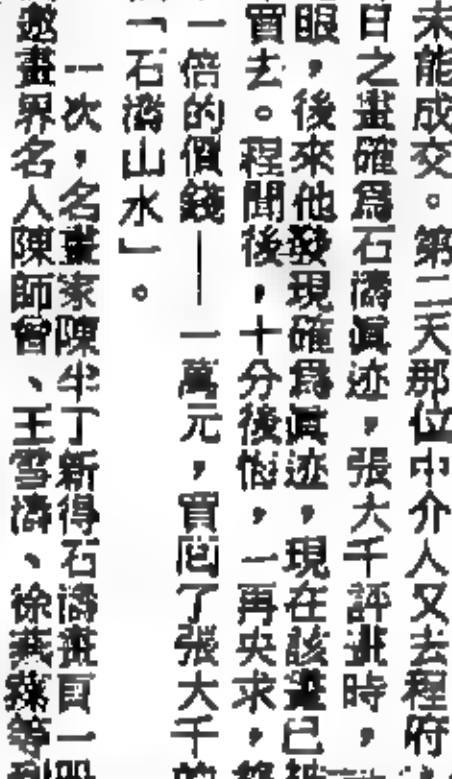 未能成交。第二天那位中介人又去程府
日之畫確爲石濤眞迹，張大千評畫時，
眼，後來他發現確爲眞迹，現在該畫已被
買去。程聞後，十分後悔，一再央求，終
一倍的價錢——一萬元，買回了張大千的
「石濤山水」。
一次，名畫家陳半丁新得石濤畫頁一册
邀畫界名人陳師曾、王雪濤、徐燕蓀等到